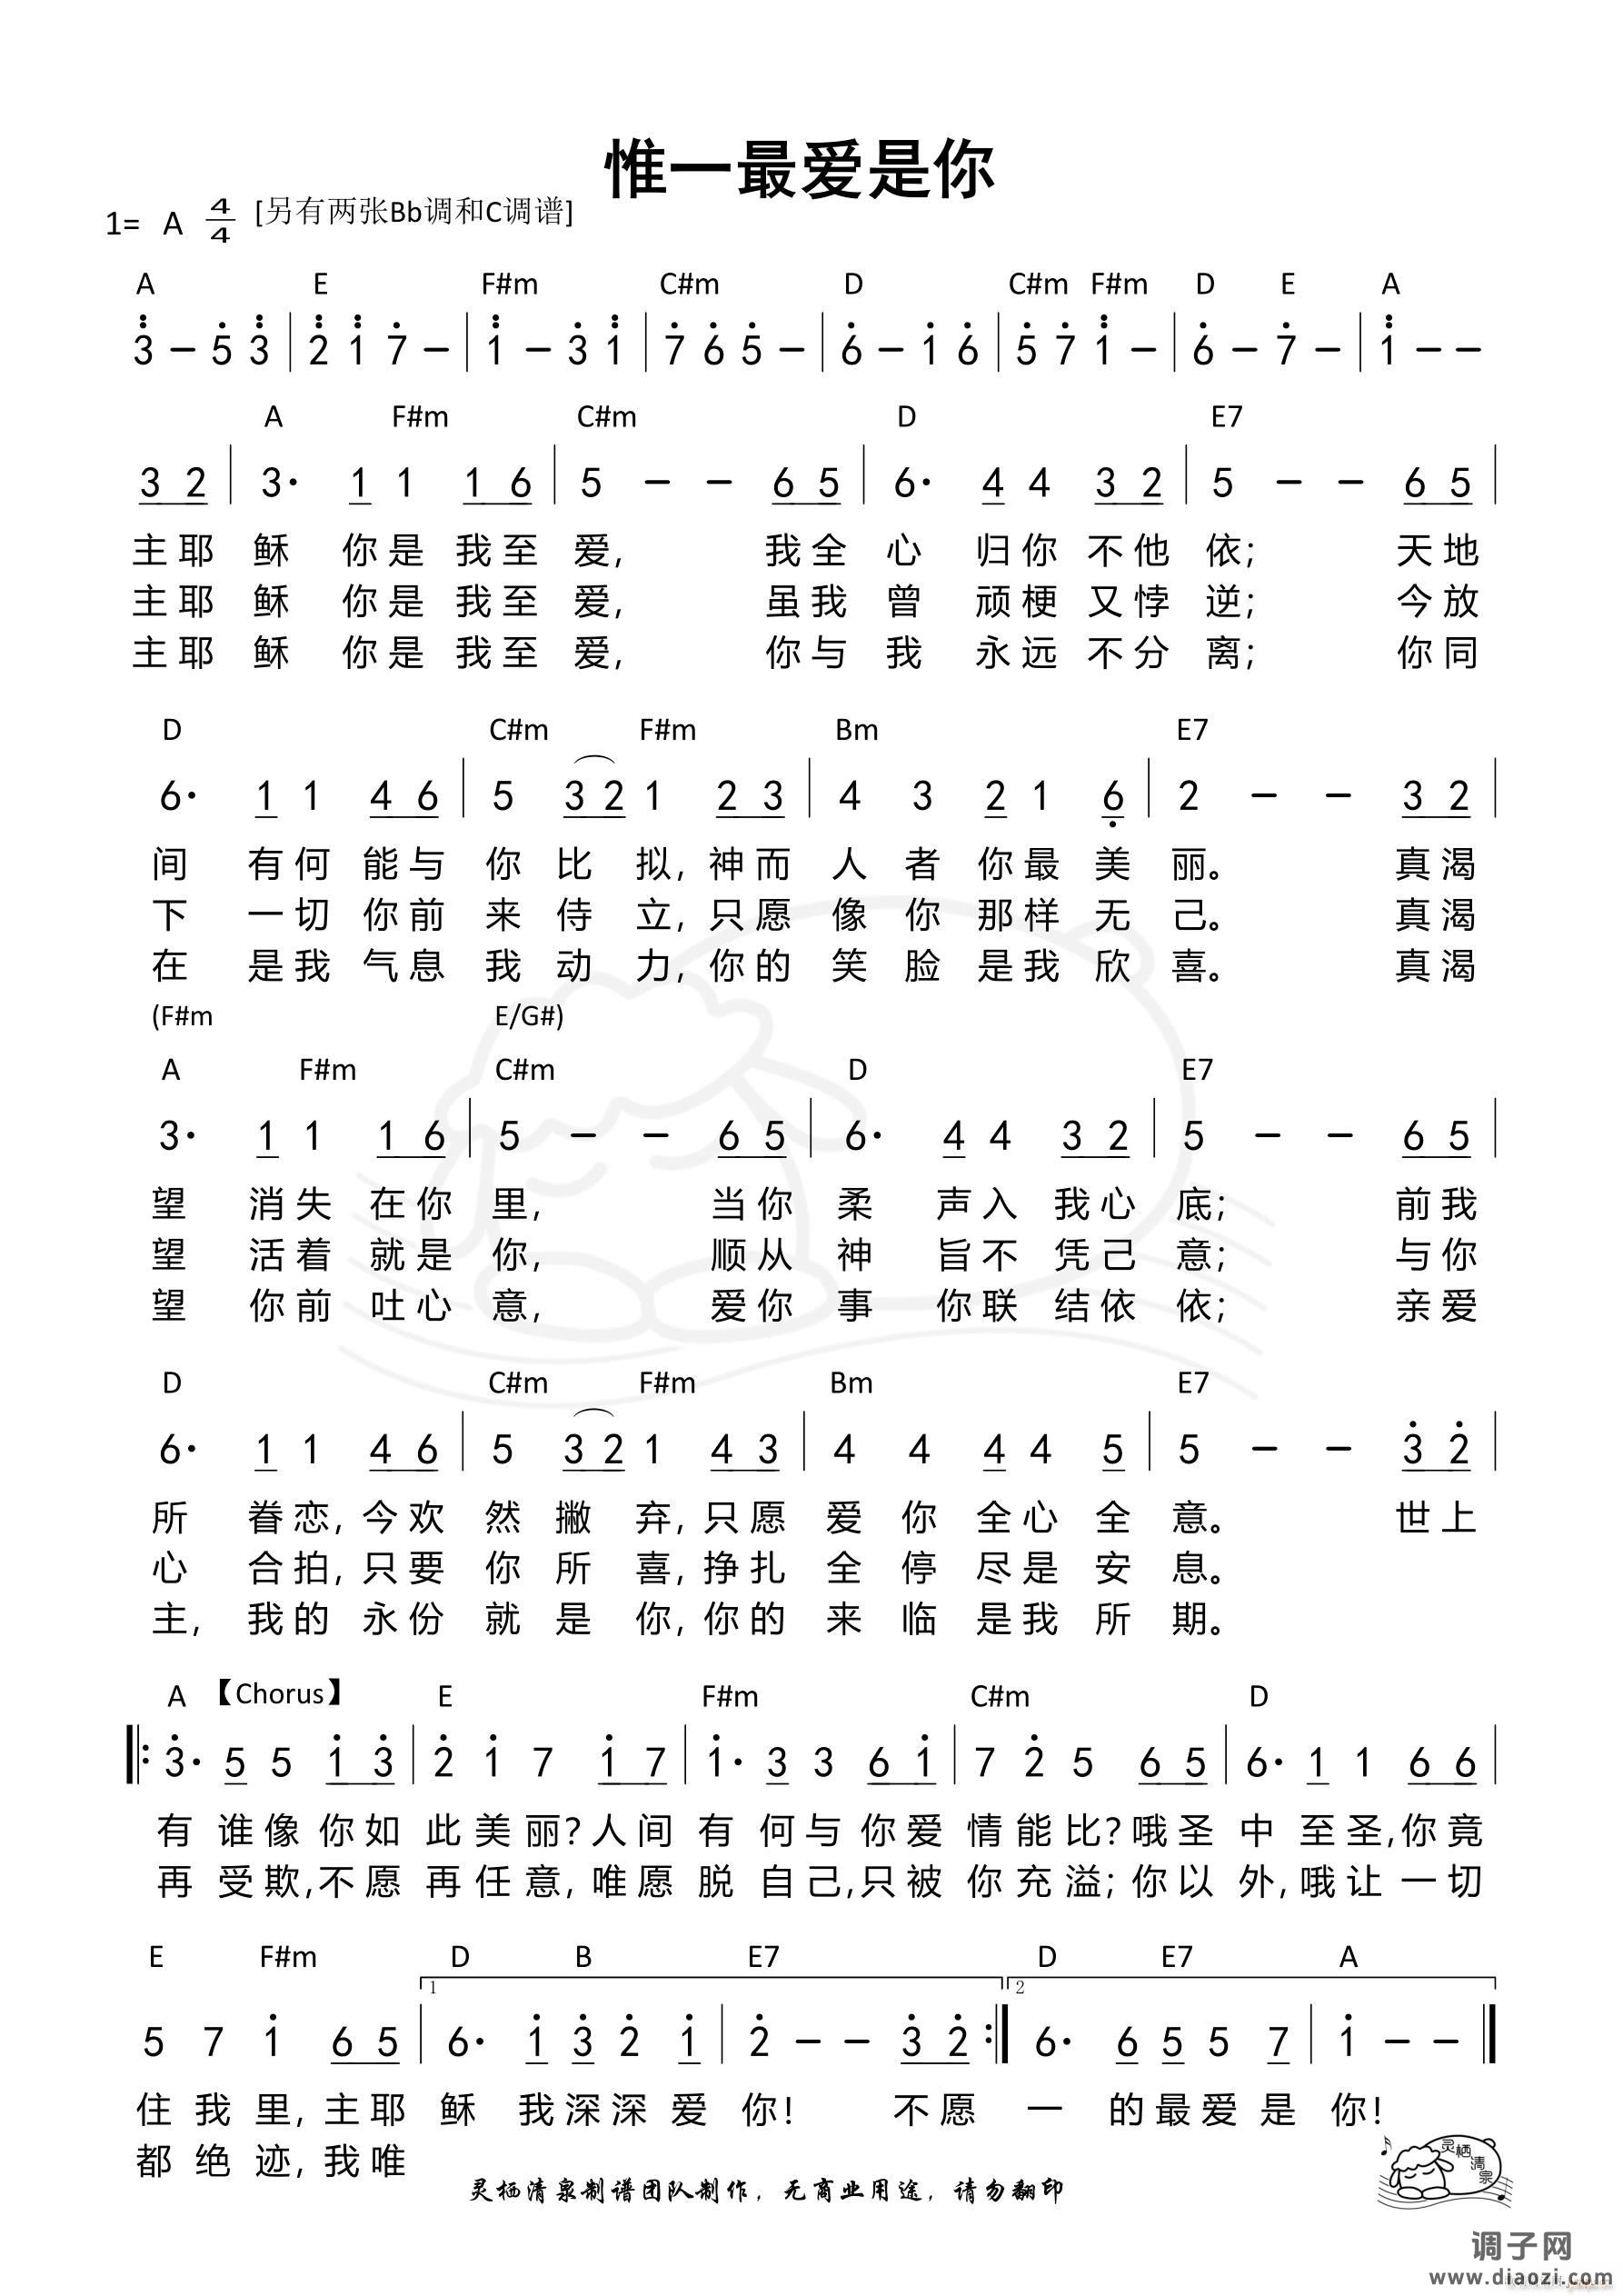 惟一最爱是你
1= A 4/4 [另有两张Bb调和C调谱]
A E F#m C#m D C#m F#m D E A
3 – 5 3 | 2 1 7 – | 1 – 3 1 | 7 6 5 – | 6 – 1 6 | 5 7 1 – | 6 – 7 – | 1 – –
A F#m C#m D E7
3 2 | 3· 1 1 1 6 | 5 – – 6 5 | 6· 4 4 3 2 | 5 – – 6 5 |
主耶 稣 你是 我至 爱, 我全 心 归你 不他 依; 天地
主耶 稣 你是 我至 爱, 虽我 曾 顽梗 又悖 逆; 今放
主耶 稣 你是 我至 爱, 你与 我 永远 不分 离; 你同
D C#m F#m Bm E7
6· 1 1 4 6 | 5 3 2 1 2 3 | 4 3 2 1 6 | 2 – – 3 2 |
间 有何 能与 你 比 拟, 神而 人 者 你最 美 丽。 真渴
下 一切 你前 来 侍 立, 只愿 像 你 那样 无 己。 真渴
在 是我 气息 我 动 力, 你的 笑 脸 是我 欣 喜。 真渴
(F#m E/G#)
A F#m C#m D E7
3· 1 1 1 6 | 5 – – 6 5 | 6· 4 4 3 2 | 5 – – 6 5 |
望 消失 在你 里, 当你 柔 声入 我心 底; 前我
望 活着 就是 你, 顺从 神 旨不 凭己 意; 与你
望 你前 吐心 意, 爱你 事 你联 结依 依; 亲爱
D C#m F#m Bm E7
6· 1 1 4 6 | 5 3 2 1 4 3 | 4 4 4 4 5 | 5 – – 3 2 |
所 眷恋, 今欢 然 撇 弃, 只愿 爱 你 全心 全 意。 世上
心 合拍, 只要 你 所 喜, 挣扎 全 停 尽是 安 息。
主, 我的 永份 就 是 你, 你的 来 临 是我 所 期。
A 【Chorus】 E F#m C#m D
3· 5 5 1 3 | 2 1 7 1 7 | 1· 3 3 6 1 | 7 2 5 6 5 | 6· 1 1 6 6 |
有 谁像 你如 此美丽? 人间 有 何与 你爱 情能比? 哦圣 中 至圣, 你竟
再 受欺, 不愿 再任意, 唯愿 脱 自己, 只被 你充溢; 你以 外, 哦让 一切
E F#m D B E7 D E7 A
1 2
5 7 1 6 5 | 6· 1 3 2 1 | 2 – – 3 2 | 6· 6 5 5 7 | 1 – –
住我里, 主耶 稣 我深深爱 你! 不愿 一 的最爱是 你!
都绝迹, 我唯
灵栖清泉制谱团队制作，无商业用途，请勿翻印
灵栖清泉
调子网
www.diaozi.com